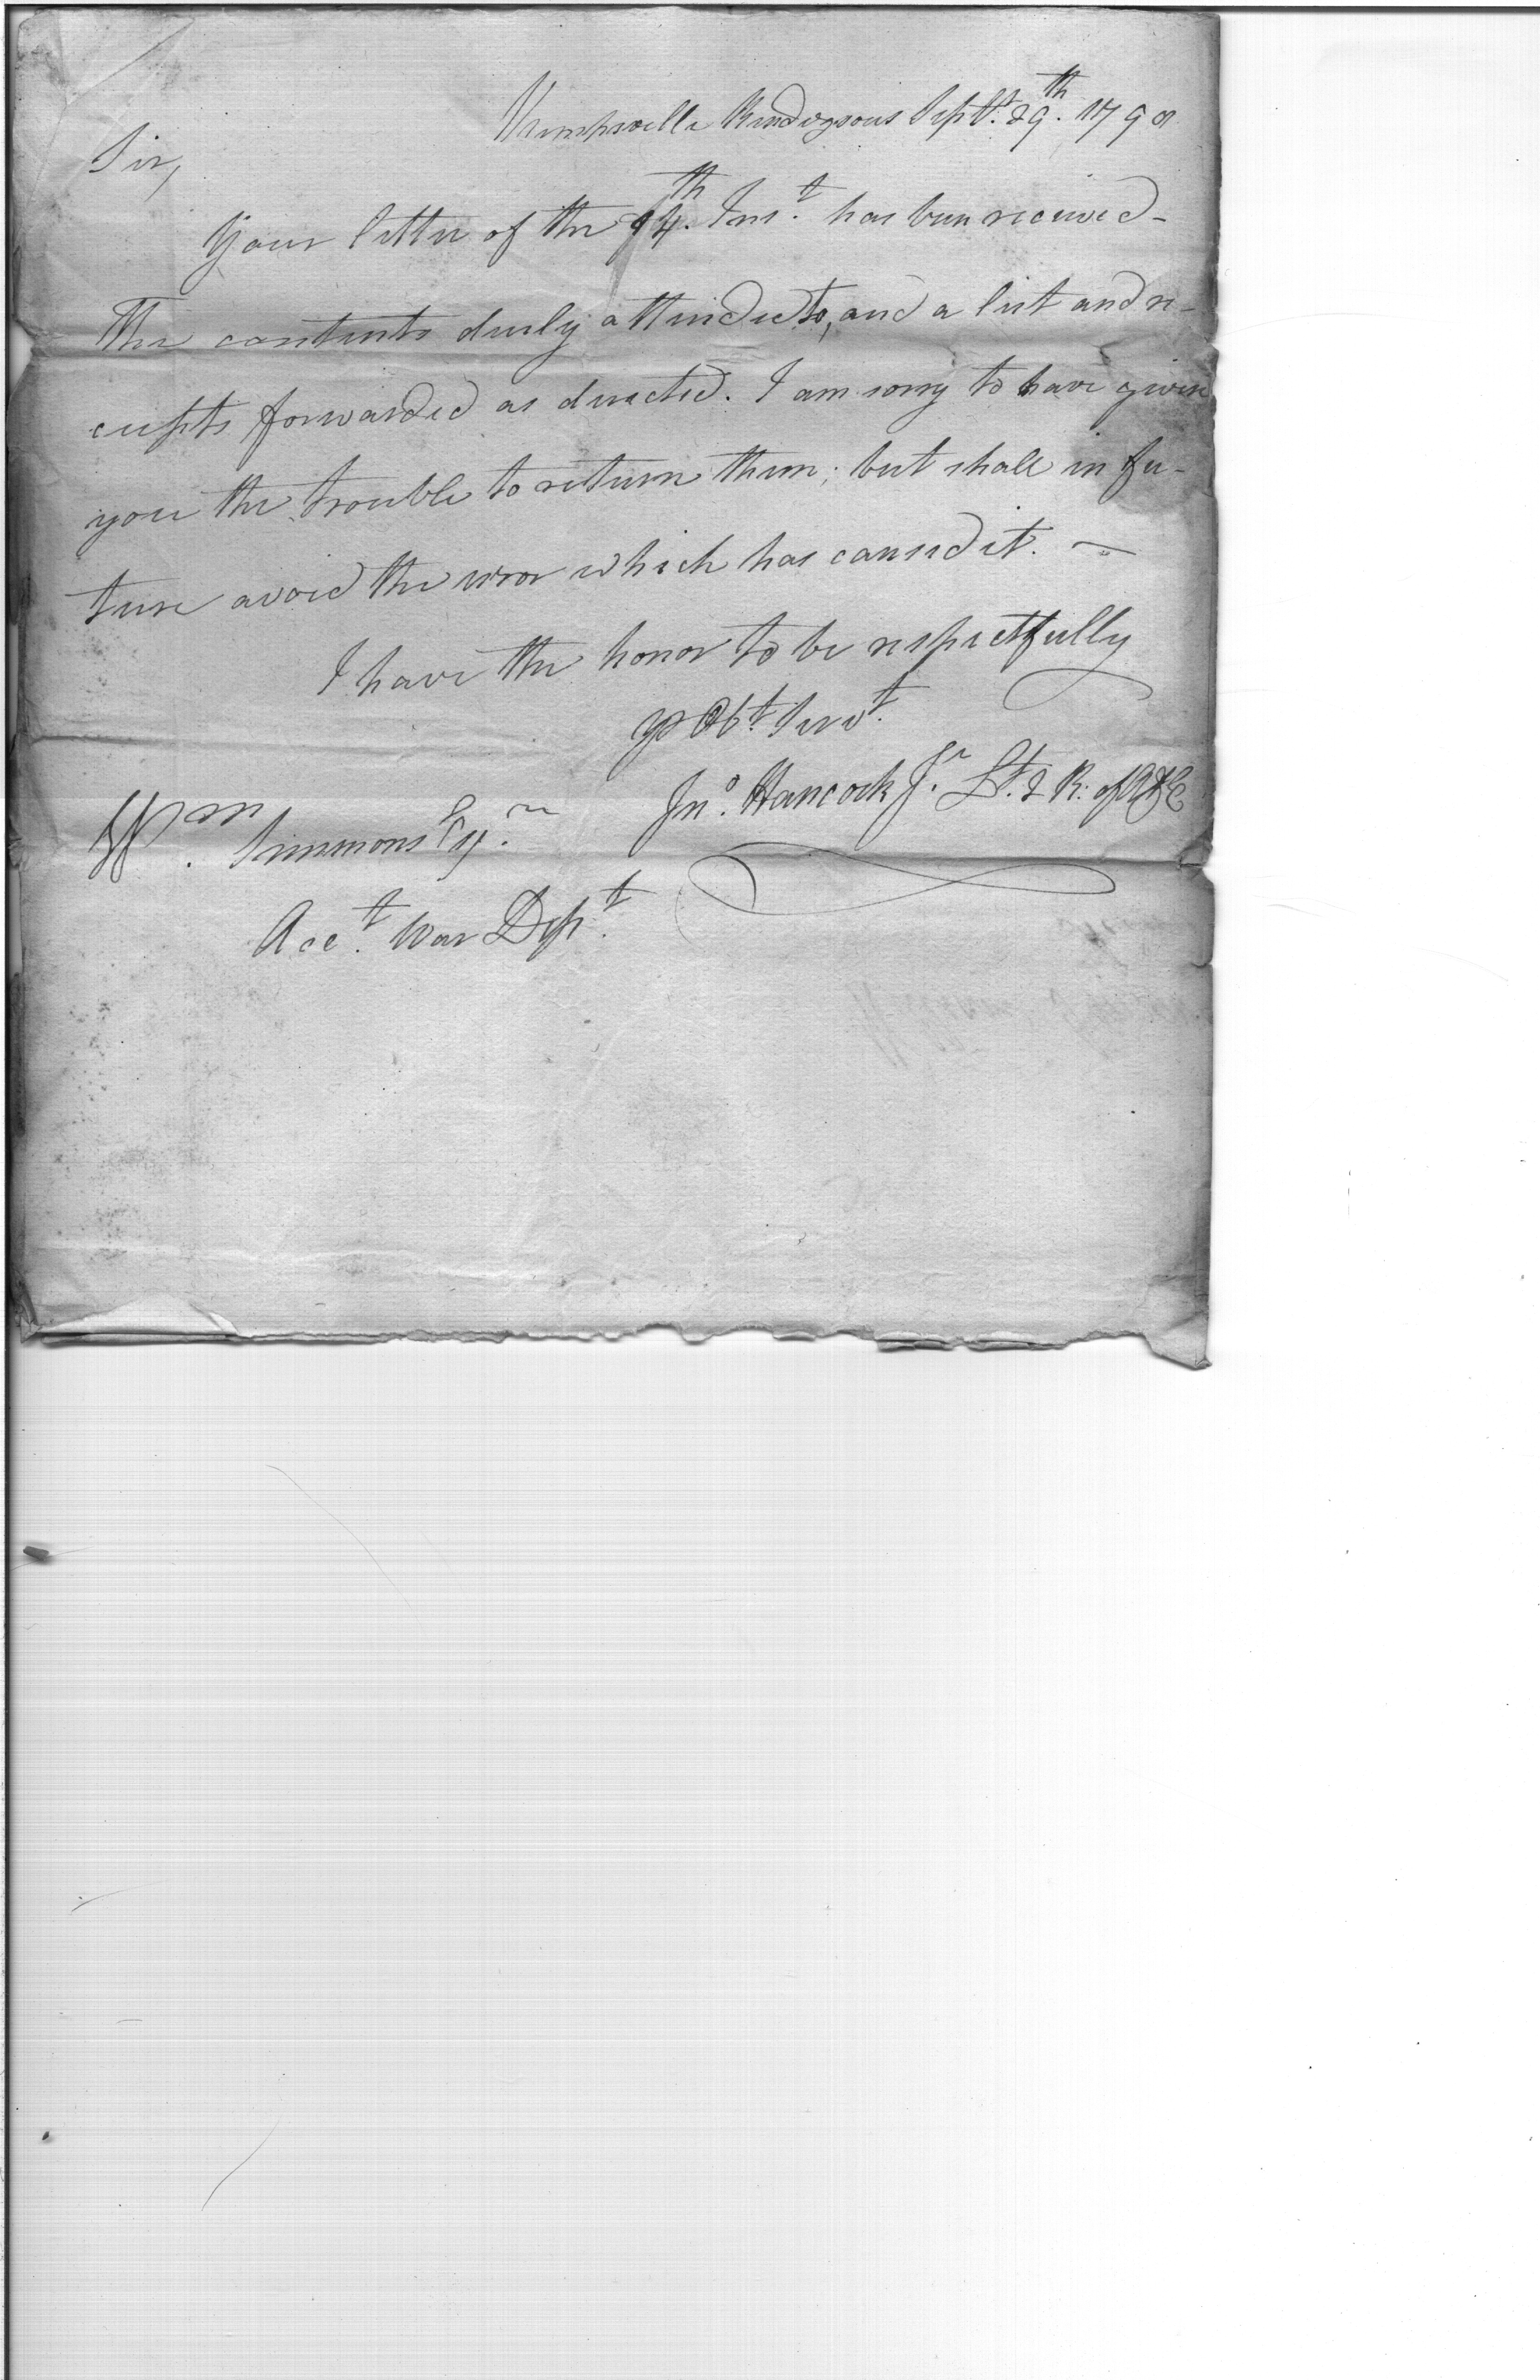 Rendezvous Sept. 29th. 1798
Sir,
Your letter of the 14th. Inst. has been received-
The contents duly attended to, and a list and re-
ceipts forwarded as directed. I am sorry to have given
you the trouble to return them; but shall in fu-
ture avoid the error which has caused it. —
I have the honor to be respectfully
yr Obt. Servt.
Jno. Hancock Jr. Lt. 2 R. of A & E
Wm. Simmons Esqr.
Acct. War Dept.